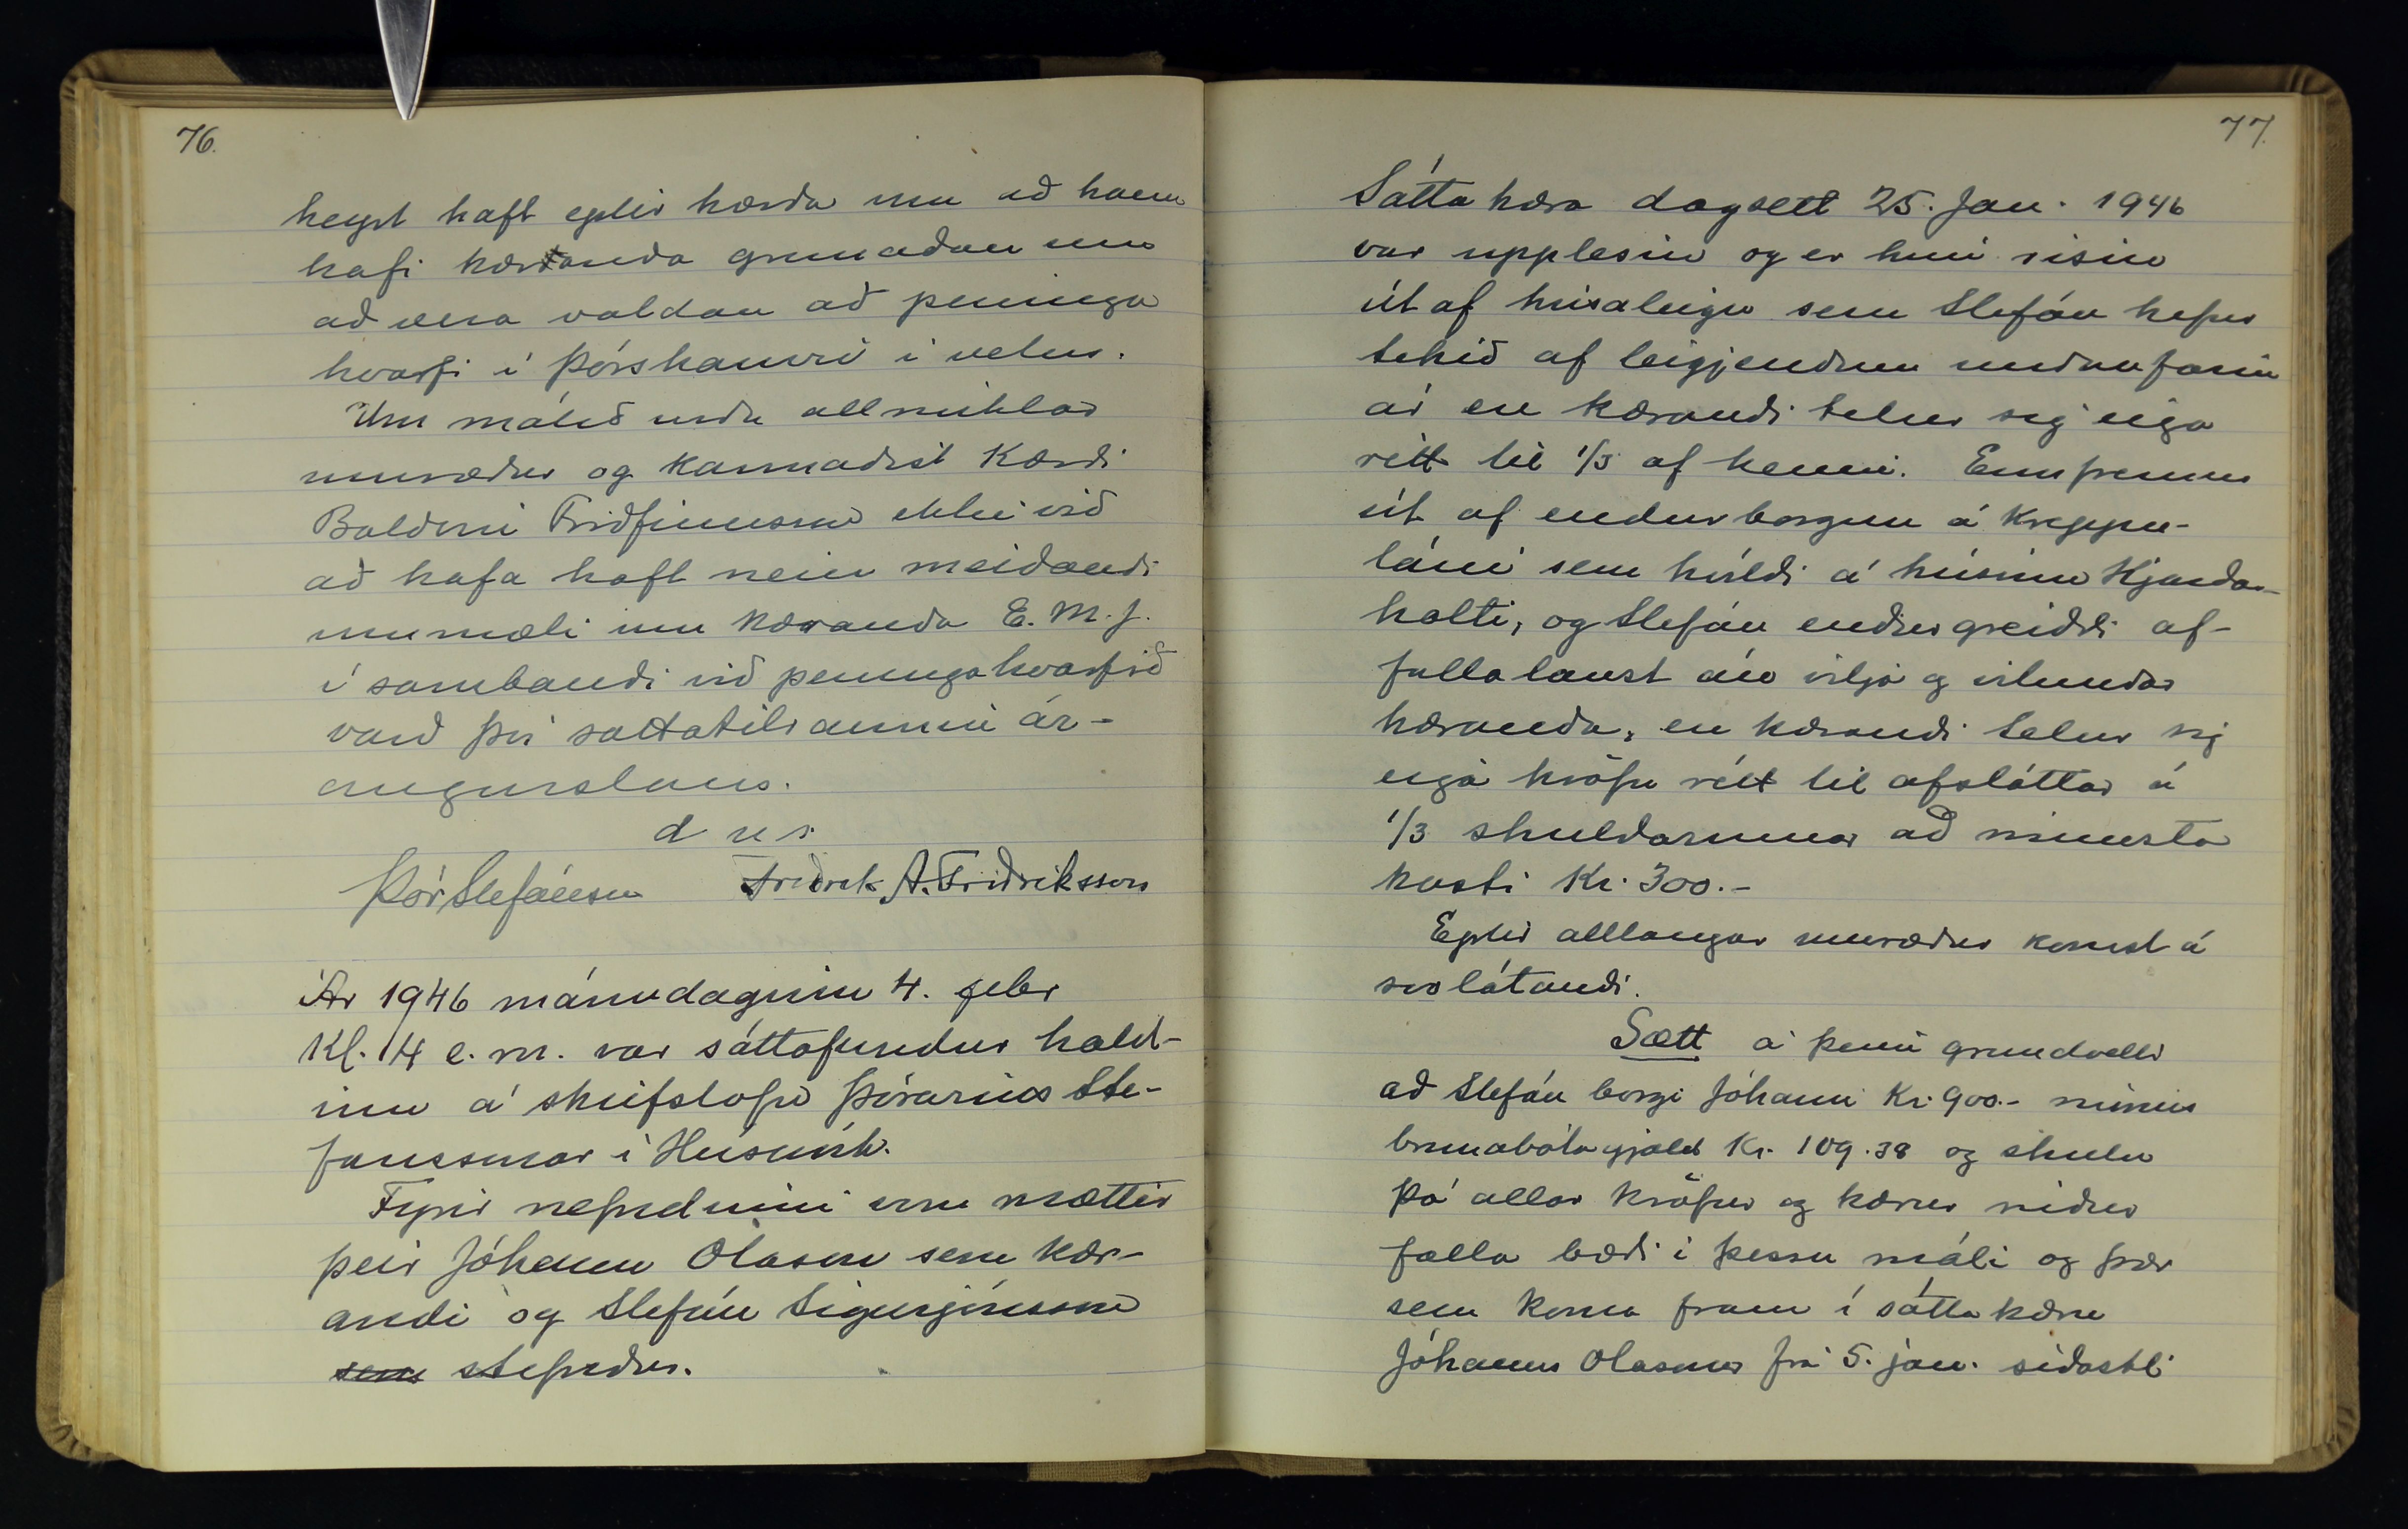 76.
heyrt haft eptir kærða um að hann
hafi kæranda grunaðan um
að vera valdan að peninga
hvarfi í Þórshamri í vetur.
Um málið urðu allmiklar
umræður og kannaðist Kærði
Baldvin Friðfinnsson ekki við
að hafa haft nein meiðandi
ummæli um kæranda E. M. J.
í sambandi við peningahvarfið
varð því sáttatilraunin ár-
angurslaus.
d u s.
Þór Stefánsson Friðrik A. Friðriksson
Ár 1946 mánudaginn 4. febr
Kl. 4 e. m. var sáttafundur hald-
inn á skrifstofu Þórarins Ste-
fánssonar í Húsavík.
Fyrir nefndinni eru mættir
þeir Jóhann Olason sem kær-
andi og Stefán Sigurjónsson
sem stefndur.
77.
Sátta kæra dagsett 25. Jan. 1946
var upplesin og er hún risin
út af húsaleigu sem Stefán hefur
tekið af leigjendum undanfarin
ár en kærandi telur sig eiga
rétt til 1/3 af henni. Ennfremur
út af endurborgun á Kreppu-
láni sem hvíldi á húsinu Hjarðar-
holti, og Stefán endurgreiddi af-
fallalaust án vilja og vitundar
kæranda, en kærandi telur sig
eiga kröfu rétt til afsláttar á
1/3 skuldarinnar að minnsta
kosti Kr. 300.-
Eptir alllangar umræður komst á
svolátandi.
Sætt á þeim grundvelli
að Stefán borgi Jóhanni Kr. 900.- mínus
brunabótagjald Kr. 109.38 og skulu
þá allar kröfur og kærur niður
falla bæði í þessu máli og þær
sem koma fram í sátta kæru
Jóhanns Olasonar frá 5. jan. síðastl.